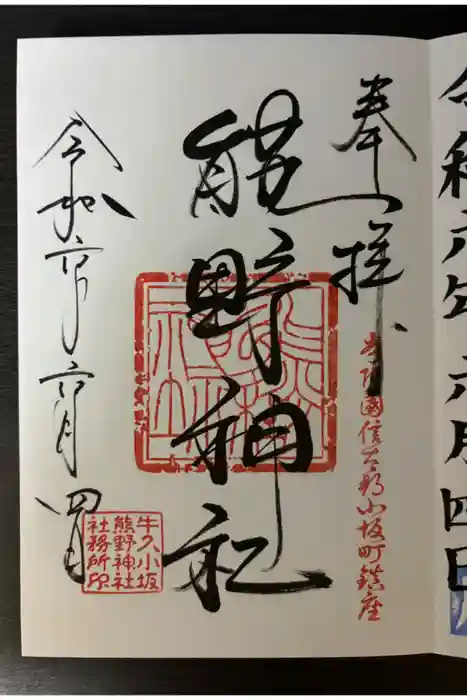 令和六年六月四日
奉拝
常陸國信太郡小坂町鎮座
熊野神社
令和六年六月四日
牛久小坂
熊野神社
社務所印